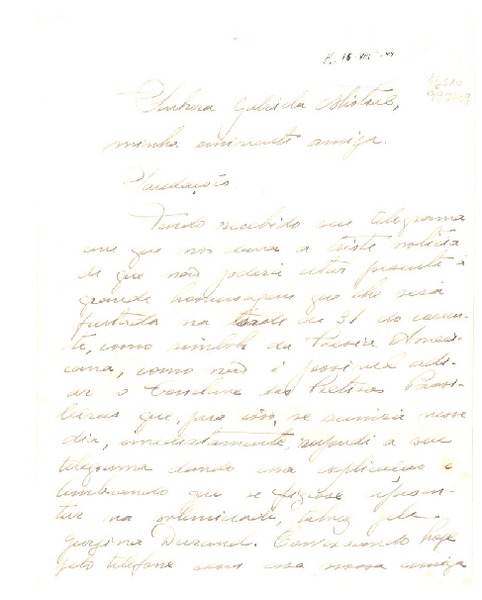 Senhora Gabriela Mistral,
minha eminente amiga.
Saudações
Tendo recebido seu telegrama
em que nos dava a triste notícia
de que não poderá estar presente à
grande homenagem que lhe será
na tarde de 31 do corren-
te, como símbolo da Poesia Ameri-
cana, como não é possível adi-
ar o das Poetisas Brasi-
leiras que, para isso, se reunirá nesse
dia, imediatamente, respondi a seu
telegrama dando essa explicação e
lembrando que se fizesse represen-
tar na solenidade, talvez pela
Georgina Durand. Conversando hoje
pelo telefone com essa nossa amiga